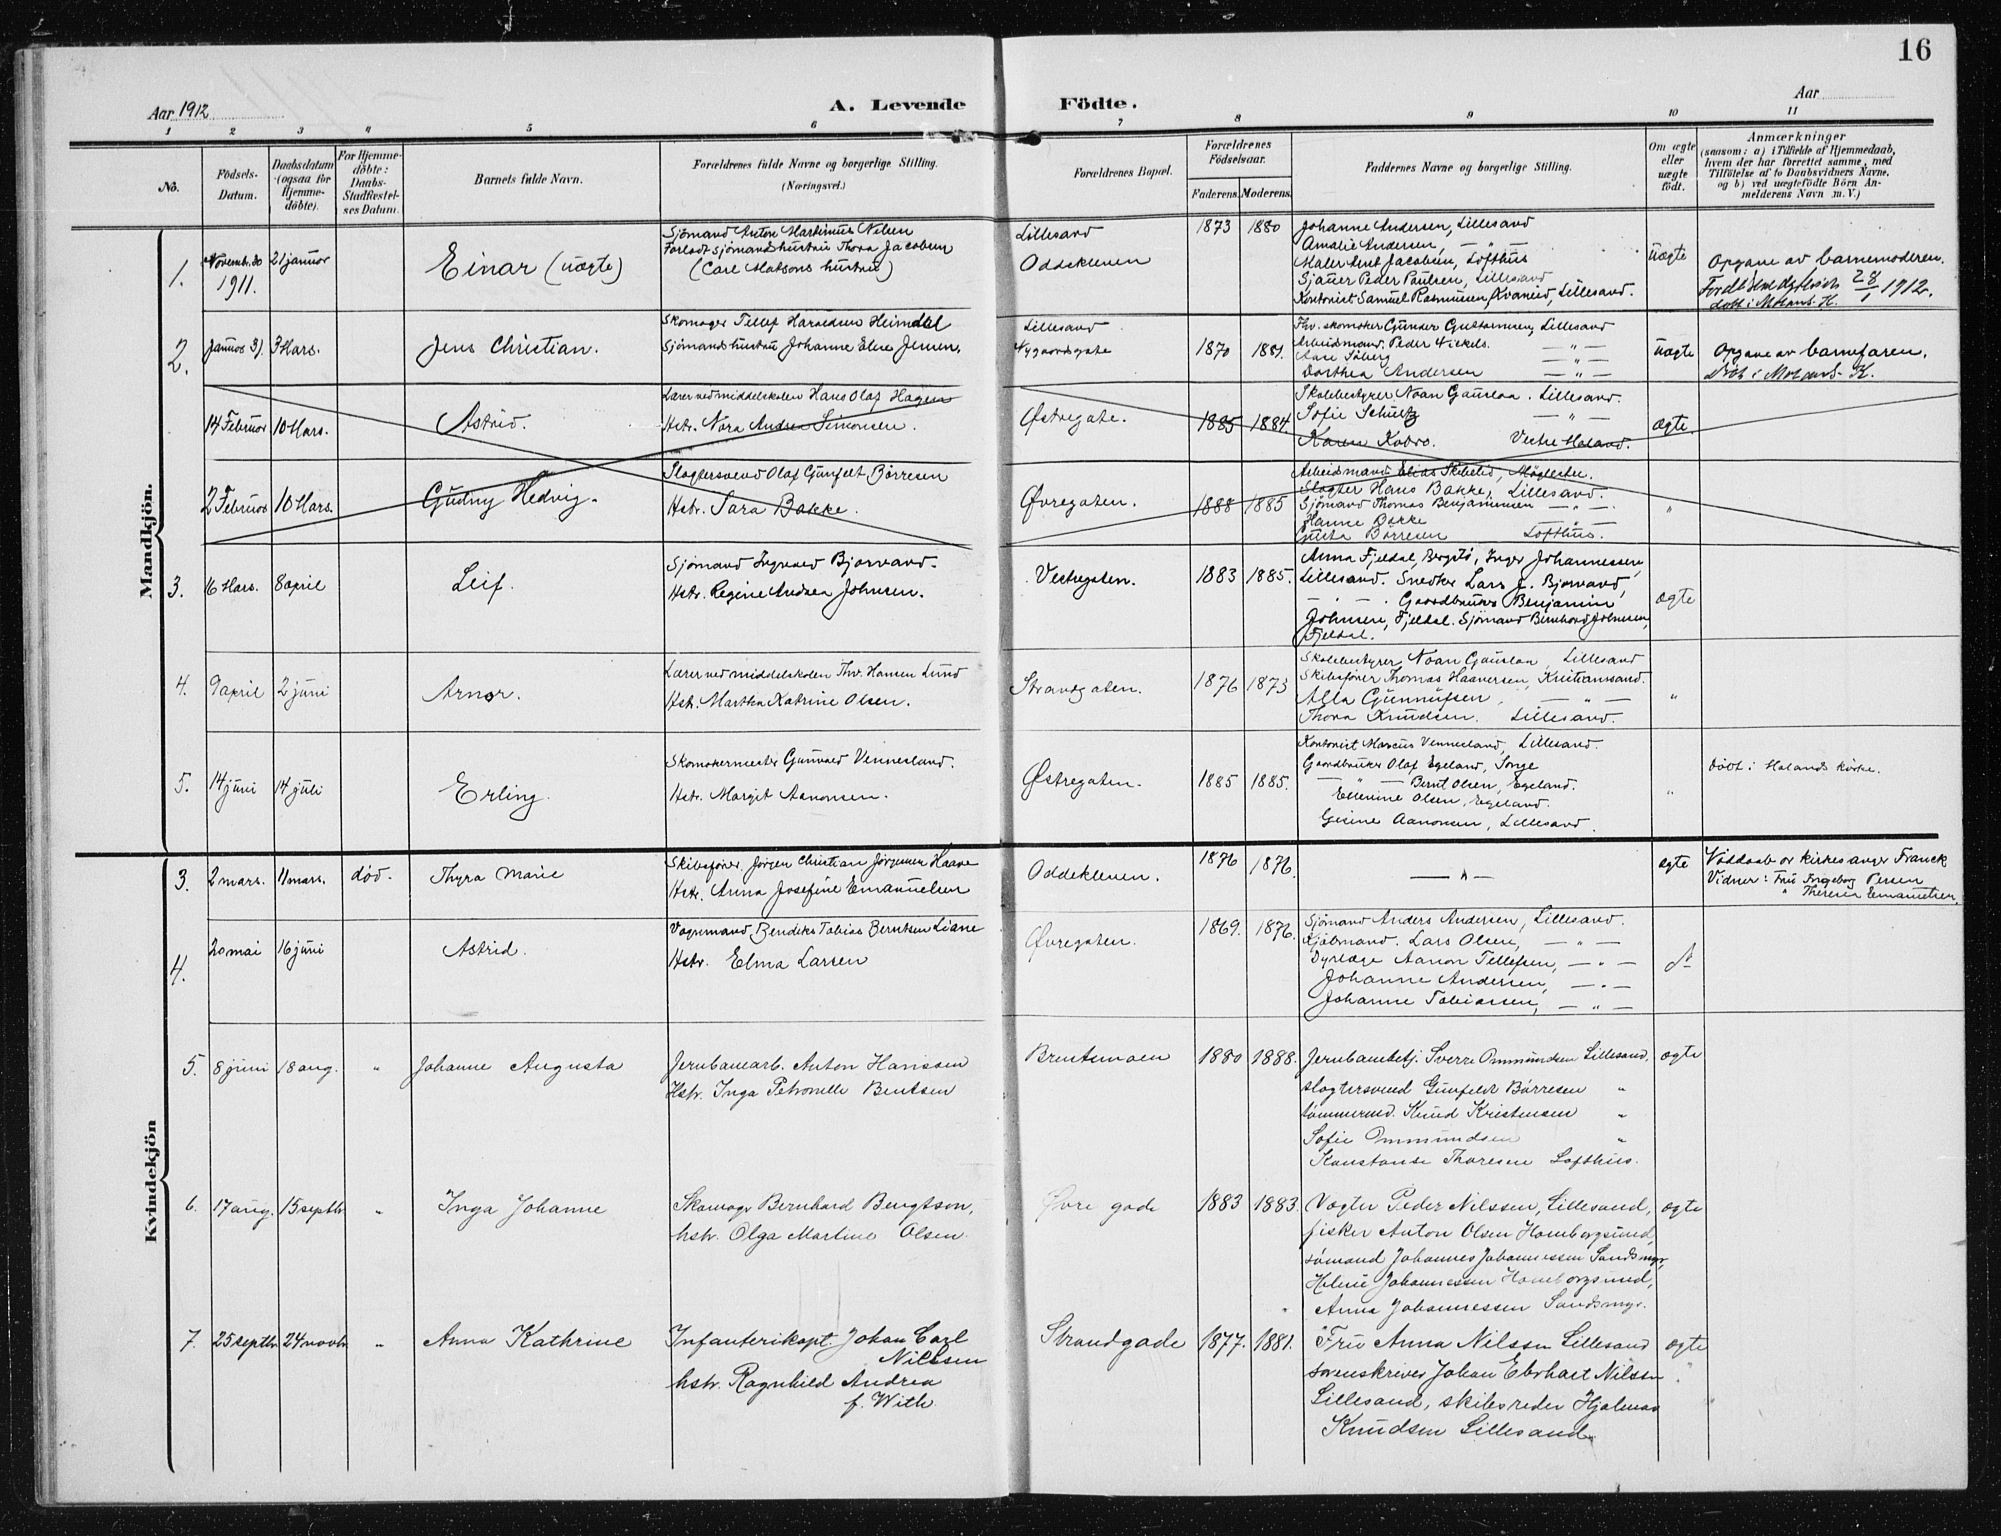 16
Aar 1912
A. Levende Födte.
Aar
1 2 3 4 5 6 7 8 9 10 11
No.
Födsels-Datum.
Daabsdatum (ogsaa for Hjemme-döbte).
For Hjemme-döbte: Daabs-Stadfæstel-ses Datum.
Barnets fulde Navn.
Forældrenes fulde Navne og borgerlige Stilling.
(Næringsvei.)
Forældrenes Bopæl.
Forældrenes Födselsaar.
Faderens. Moderens.
Faddernes Navne og borgerlige Stilling.
Om ægte eller uægte födt.
Anmærkninger
(saasom: a) i Tilfælde af Hjemmedaab,
hvem der har forrettet samme, med
Tilföielse af to Daabsvidners Navne,
og b) ved uægtefödte Börn An-
melderens Navn m. V.)
Mandkjön.
1. Novemb. 30 1911. 21 januar
Einar (uægte)
Sjömand Anton Martinius Nilsen
Forladt sjömandshustru Thora Jacobsen
(Carl Matsons hustru)
Lillesand
Oddekleven
1873 1880
Johanne Andersen, Lillesand
Amalie Andersen, — " —
Maler Jacobsen, Lofthus
Sjauer Peder Paulsen, Lillesand
Kontorist Samuel Rasmussen, Lillesand.
uægte
Opgave av barnemoderen.
28/1 1912.
2. Januar 31. 3 Mars.
Jens Christian.
Skomager Tellef Haraldsen Heimdal
Sjömandshustru Johanne Elise Jensen.
Lillesand
Nygaardsgate
1870 1881.
Fhv. skomaker Gunder Guttormsen, Lillesand
Arbeidsmand Peder — " —
Söberg — " —
Dorthea Andersen — " —
uægte
Opgave av barnefaren.
14 Februar 10 Mars.
Astrid.
Lærer ved middelskolen Hans Olaf Hagen
Hstr. Nora Andrea Simonsen.
Østregate.
1885 1884.
Skolebestyrer Noan Gauslaa. Lillesand.
Sofie Schultz — " —
Karen Kobro. Vestre Moland.
ægte.
2 Februar 10 Mars.
Gudny Hedvig.
Slagtersvend Olaf Gunfelt Börresen
Hstr. Sara Bakke.
Øvregaten.
1888 1885
Arbeidsmand Elias Skibelid, Möglestu.
Slagter Hans Bakke, Lillesand.
Sjömand Thomas Benjaminsen — " —
Hanne Bakke — " —
Gusta Börresen Lofthus.
"
3. 6 Mars. 8 april
Leif.
Sjömand Ingvald Bjorvand.
Hstr. Regine Andrea Johnsen.
Vestregaten.
1883 1885.
Anna Fjeldal, Bergstö, Inger Johannessen,
Lillesand. Snedker Lars J. Bjorvand,
— " — . Gaardbruker Benjamin
Johnsen, Fjeldal. Sjömand Bernhard Johnsen,
Fjeldal.
ægte
4. 9 april 2 juni
Arnor.
Lærer ved middelskolen Thv. Hansen Lund
Hstr. Martha Katrine Olsen.
Strandgaten.
1876 1873
Skolebestyrer Noan Gauslaa, Lillesand
Skibsförer Thomas Haaversen, Kristianssand.
Alla Gunnufsen, — " —
Thora Knudsen. Lillesand.
"
5. 14 juni 14 juli
Erling
Skomakermester Gunvald Vennesland.
Hstr. Margit Aanonsen.
Østregaten.
1885 1885.
Kontorist Marcus Vennesland, Lillesand.
Gaardbruker Olaf Egeland, Songe
— " — Bernt Olsen, Egeland.
Ellevine Olsen, Egeland.
Gesine Aanonsen, Lillesand.
"
Döbt i Molands kirke.
Kvindekjön
3. 2 mars. 11 mars. död.
Thyra Marie
Skibsförer Jörgen Christian Jörgensen Haave
Hstr. Anna Josefine Emanuelsen
Oddekleven.
1876 1876.
— " —
ægte
Nöddaab av kirkesanger Franck
Vidner: Fru Ingeborg Persen
" Therese Emanuelsen.
4. 20 mai 16 juni
Astrid.
Vognmand Bendiks Tobias Berntsen Liane
Hstr. Elma Larsen
Øvregaten.
1869. 1876.
Sjömand Anders Andersen, Lillesand.
Kjöbmand. Lars Olsen, — " —
Dyrlæge Aanon Tellefsen, — " —
Johanne Andersen, — " —
Johanne Tobiassen, — " —
5. 8 juni 18 aug. "
Johanne Augusta
Jernbanearb. Anton Hanssen
Hstr. Inga Petronelle Bentsen
Brentemoen
1880 1888.
Jernbanebetj. Sverre Ommundsen Lillesand.
slagtersvend Gunfeldt Börresen "
tömmermd. Knud Kristensen "
Sofie Ommundsen "
Konstanse Thoresen Lofthus.
ægte
6. 17 aug. 15 septbr. "
Inga Johanne
Skomagr Bernhard Bengtson,
hstr. Olga Martine Olsen.
Øvre gade
1883 1883.
Vogter Peder Nilssen, Lillesand,
fisker Anton Olsen Homborgsund,
sömand Johannes Johannessen Sandsmyr,
Helene Johannessen Homborgsund,
Anna Johannessen Sandsmyr.
ægte
7. 25 septbr. 24 novbr. "
Anna Kathrine
Infanterikapt. Johan Carl
Nilssen
hstr. Ragnhild Andrea
f. With
Strandgade
1877. 1881.
Fru Anna Nilssen Lillesand
sorenskriver Johan Eberhart Nilssen
Lillesand, skibsreder Hjalmar
Knudsen Lillesand.
ægte